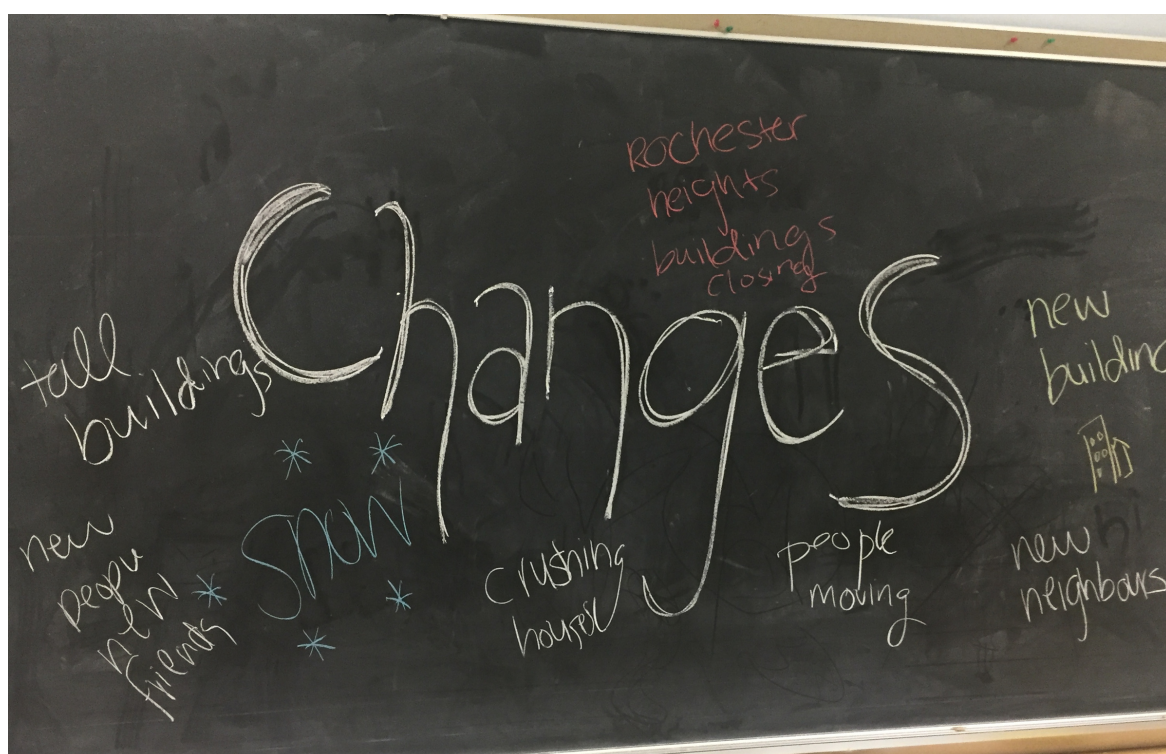 Rochester
heights
buildings
closing
Changes
tall
buildings
new
building
snow
new
people
new
friends
crushing
houses
people
moving
new
neighbours